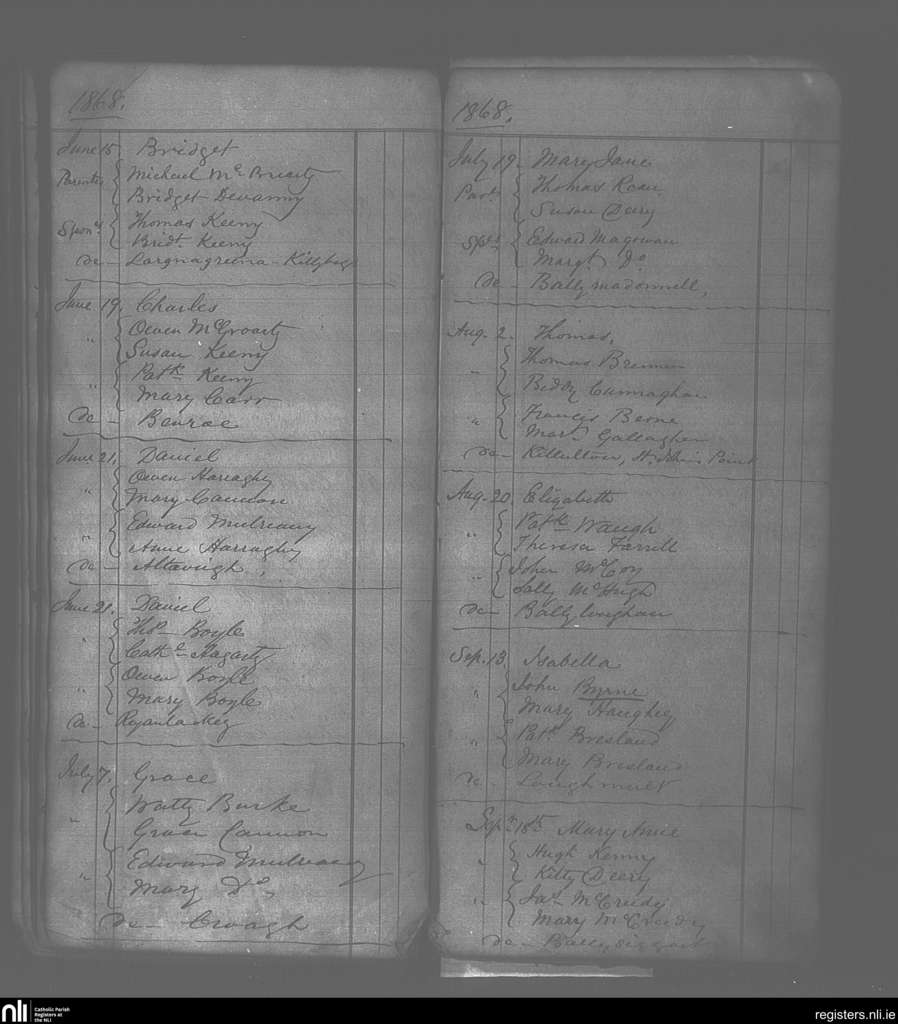 1868.
June 15, Bridget
Parents Michael Mc Briarty
Bridget Devanny
Spon.s Thomas Keeny
Bridt. Keeny
de - Largnagreina - Killybegs
June 19, Charles
" Owen McGroarty
Susan Keeny
" Patk Keeny
Mary Carr
de - Benroe
June 21, Daniel
" Owen Harraghy
Mary Cannon
" Edward Mulreany
Anne Harraghy
de - Altavough
June 21. Daniel
" Thos Boyle
Cathe Hagarty
" Owen Boyle
Mary Boyle
de -
July 7, Grace
" Watty Burke
Grace Cannon
" Edward Mulreany
Mary Do,
de - Croagh
1868.
July 19. Mary Jane
Parts Thomas Roan
Susan Deery
Spsrs Edward Magowan
Margt Do
de - Ballymadonnell,
Aug. 2. Thomas,
" Thomas Brennan
Biddy Cunnaghan
" Francis Beone
Mary Gallagher
de - Killultan, St. John's Point
Aug. 20 Elizabeth
" Patk Waugh
Theresa Farrill
" John McCoy
Sally McHugh
de - Ballyloughan
Sep. 13. Isabella
" John Byrne
Mary Haughey
" Patk Bresland
Mary Bresland
de - Loughmult
Sepr 18th Mary Anne
" Hugh Kenny
Kitty Deery
" Jas McCredy
Mary McCreedy
de -
nli Catholic Parish
Registers at
the NLI
registers.nli.ie